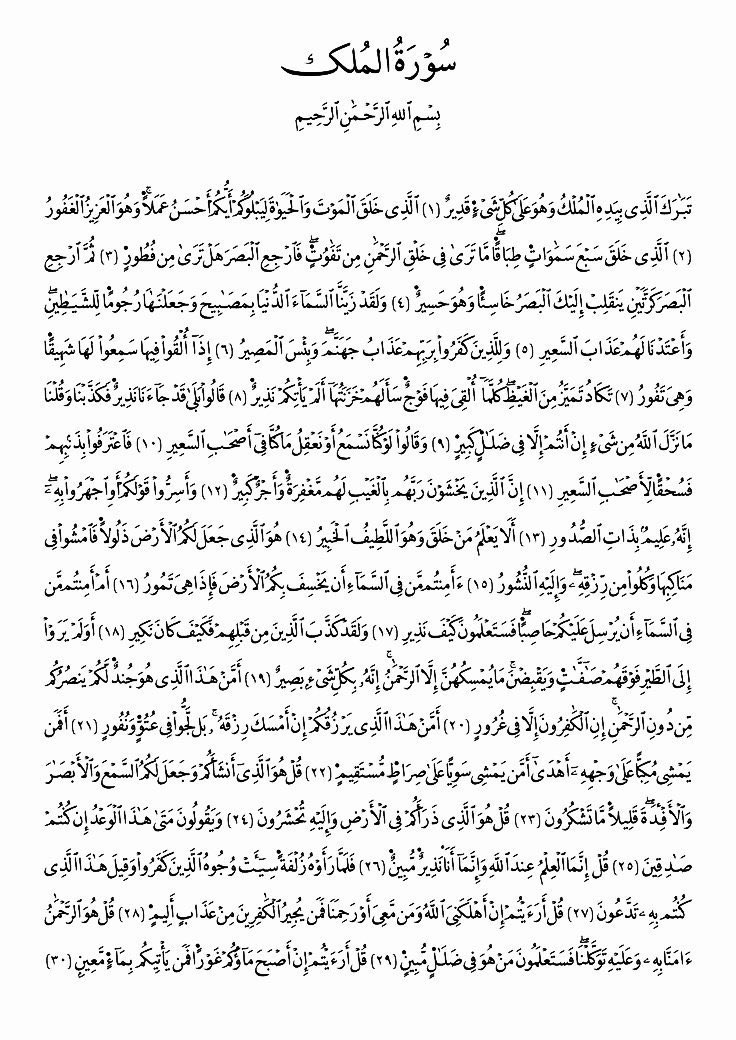 سُورَةُ الْمُلْكِ
بِسْمِ اللهِ الرَّحْمَٰنِ الرَّحِيمِ
تَبَٰرَكَ ٱلَّذِى بِيَدِهِ ٱلْمُلْكُ وَهُوَ عَلَىٰ كُلِّ شَىْءٍ قَدِيرٌ (١) ٱلَّذِى خَلَقَ ٱلْمَوْتَ وَٱلْحَيَوٰةَ لِيَبْلُوَكُمْ أَيُّكُمْ أَحْسَنُ عَمَلًاۚ وَهُوَ ٱلْعَزِيزُ ٱلْغَفُورُ
(٢) ٱلَّذِى خَلَقَ سَبْعَ سَمَٰوَاتٍ طِبَاقًاۖ مَّا تَرَىٰ فِى خَلْقِ ٱلرَّحْمَٰنِ مِن تَفَٰوُتٍۖ فَٱرْجِعِ ٱلْبَصَرَ هَلْ تَرَىٰ مِن فُطُورٍ (٣) ثُمَّ ٱرْجِعِ
ٱلْبَصَرَ كَرَّتَيْنِ يَنقَلِبْ إِلَيْكَ ٱلْبَصَرُ خَاسِئًا وَهُوَ حَسِيرٌ (٤) وَلَقَدْ زَيَّنَّا ٱلسَّمَآءَ ٱلدُّنْيَا بِمَصَٰبِيحَ وَجَعَلْنَٰهَا رُجُومًا لِّلشَّيَٰطِينِۖ
وَأَعْتَدْنَا لَهُمْ عَذَابَ ٱلسَّعِيرِ (٥) وَلِلَّذِينَ كَفَرُوا۟ بِرَبِّهِمْ عَذَابُ جَهَنَّمَۖ وَبِئْسَ ٱلْمَصِيرُ (٦) إِذَآ أُلْقُوا۟ فِيهَا سَمِعُوا۟ لَهَا شَهِيقًا
وَهِىَ تَفُورُ (٧) تَكَادُ تَمَيَّزُ مِنَ ٱلْغَيْظِۖ كُلَّمَآ أُلْقِىَ فِيهَا فَوْجٌ سَأَلَهُمْ خَزَنَتُهَآ أَلَمْ يَأْتِكُمْ نَذِيرٌ (٨) قَالُوا۟ بَلَىٰ قَدْ جَآءَنَا نَذِيرٌ فَكَذَّبْنَا وَقُلْنَا
مَا نَزَّلَ ٱللَّهُ مِن شَىْءٍ إِنْ أَنتُمْ إِلَّا فِى ضَلَٰلٍ كَبِيرٍ (٩) وَقَالُوا۟ لَوْ كُنَّا نَسْمَعُ أَوْ نَعْقِلُ مَا كُنَّا فِىٓ أَصْحَٰبِ ٱلسَّعِيرِ (١٠) فَٱعْتَرَفُوا۟ بِذَنۢبِهِمْ
فَسُحْقًا لِّأَصْحَٰبِ ٱلسَّعِيرِ (١١) إِنَّ ٱلَّذِينَ يَخْشَوْنَ رَبَّهُم بِٱلْغَيْبِ لَهُم مَّغْفِرَةٌ وَأَجْرٌ كَبِيرٌ (١٢) وَأَسِرُّوا۟ قَوْلَكُمْ أَوِ ٱجْهَرُوا۟ بِهِۦٓۖ
إِنَّهُۥ عَلِيمٌۢ بِذَاتِ ٱلصُّدُورِ (١٣) أَلَا يَعْلَمُ مَنْ خَلَقَ وَهُوَ ٱللَّطِيفُ ٱلْخَبِيرُ (١٤) هُوَ ٱلَّذِى جَعَلَ لَكُمُ ٱلْأَرْضَ ذَلُولًا فَٱمْشُوا۟ فِى
مَنَاكِبِهَا وَكُلُوا۟ مِن رِّزْقِهِۦۖ وَإِلَيْهِ ٱلنُّشُورُ (١٥) ءَأَمِنتُم مَّن فِى ٱلسَّمَآءِ أَن يَخْسِفَ بِكُمُ ٱلْأَرْضَ فَإِذَا هِىَ تَمُورُ (١٦) أَمْ أَمِنتُم مَّن
فِى ٱلسَّمَآءِ أَن يُرْسِلَ عَلَيْكُمْ حَاصِبًاۖ فَسَتَعْلَمُونَ كَيْفَ نَذِيرِ (١٧) وَلَقَدْ كَذَّبَ ٱلَّذِينَ مِن قَبْلِهِمْ فَكَيْفَ كَانَ نَكِيرِ (١٨) أَوَلَمْ يَرَوْا۟
إِلَى ٱلطَّيْرِ فَوْقَهُمْ صَٰٓفَّٰتٍ وَيَقْبِضْنَۚ مَا يُمْسِكُهُنَّ إِلَّا ٱلرَّحْمَٰنُۚ إِنَّهُۥ بِكُلِّ شَىْءٍۭ بَصِيرٌ (١٩) أَمَّنْ هَٰذَا ٱلَّذِى هُوَ جُندٌ لَّكُمْ يَنصُرُكُم
مِّن دُونِ ٱلرَّحْمَٰنِۚ إِنِ ٱلْكَٰفِرُونَ إِلَّا فِى غُرُورٍ (٢٠) أَمَّنْ هَٰذَا ٱلَّذِى يَرْزُقُكُمْ إِنْ أَمْسَكَ رِزْقَهُۥۚ بَل لَّجُّوا۟ فِى عُتُوٍّ وَنُفُورٍ (٢١) أَفَمَن
يَمْشِى مُكِبًّا عَلَىٰ وَجْهِهِۦٓ أَهْدَىٰٓ أَمَّن يَمْشِى سَوِيًّا عَلَىٰ صِرَاطٍ مُّسْتَقِيمٍ (٢٢) قُلْ هُوَ ٱلَّذِىٓ أَنشَأَكُمْ وَجَعَلَ لَكُمُ ٱلسَّمْعَ وَٱلْأَبْصَٰرَ
وَٱلْأَفْـِٔدَةَۖ قَلِيلًا مَّا تَشْكُرُونَ (٢٣) قُلْ هُوَ ٱلَّذِى ذَرَأَكُمْ فِى ٱلْأَرْضِ وَإِلَيْهِ تُحْشَرُونَ (٢٤) وَيَقُولُونَ مَتَىٰ هَٰذَا ٱلْوَعْدُ إِن كُنتُمْ
صَٰدِقِينَ (٢٥) قُلْ إِنَّمَا ٱلْعِلْمُ عِندَ ٱللَّهِ وَإِنَّمَآ أَنَا۠ نَذِيرٌ مُّبِينٌ (٢٦) فَلَمَّا رَأَوْهُ زُلْفَةً سِيٓـَٔتْ وُجُوهُ ٱلَّذِينَ كَفَرُوا۟ وَقِيلَ هَٰذَا ٱلَّذِى
كُنتُم بِهِۦ تَدَّعُونَ (٢٧) قُلْ أَرَءَيْتُمْ إِنْ أَهْلَكَنِىَ ٱللَّهُ وَمَن مَّعِىَ أَوْ رَحِمَنَا فَمَن يُجِيرُ ٱلْكَٰفِرِينَ مِنْ عَذَابٍ أَلِيمٍ (٢٨) قُلْ هُوَ ٱلرَّحْمَٰنُ
ءَامَنَّا بِهِۦ وَعَلَيْهِ تَوَكَّلْنَاۖ فَسَتَعْلَمُونَ مَنْ هُوَ فِى ضَلَٰلٍ مُّبِينٍ (٢٩) قُلْ أَرَءَيْتُمْ إِنْ أَصْبَحَ مَآؤُكُمْ غَوْرًا فَمَن يَأْتِيكُم بِمَآءٍ مَّعِينٍۭ (٣٠)